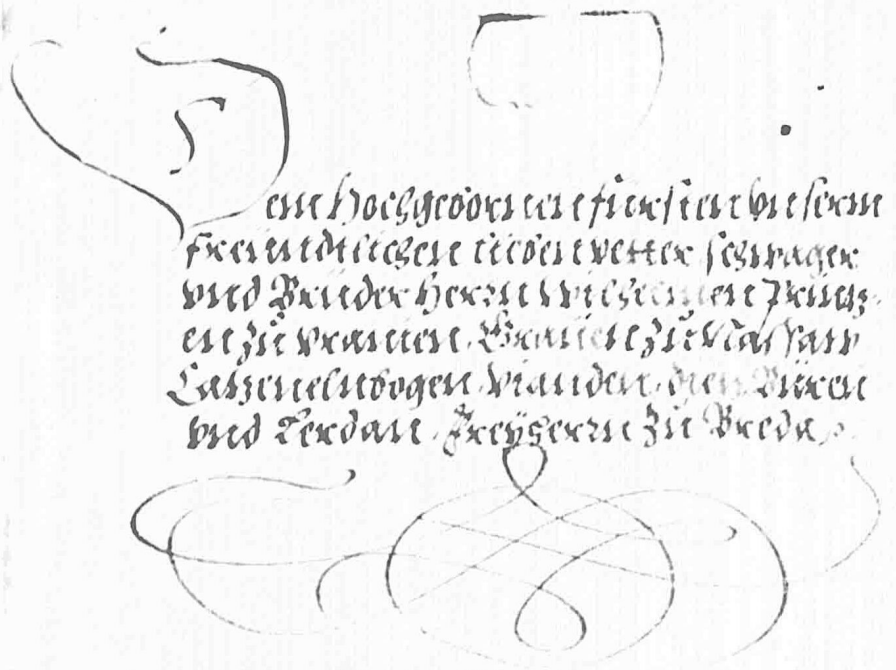 Dem Hochgebornen fürsten vnserm
freundtlichen lieben vetter schwager
vnd Brüder Herrn Wilhelmen Printz-
en zu Vranien, Grauen zu Nassaw
Catzenelnbogen, Vianden, Dietz, Büren
vnd Lerdam, Freyherrn zu Breda